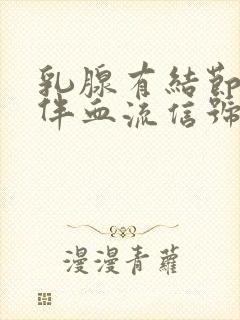 乳腺有結節
伴血流信號
漫漫青蘿